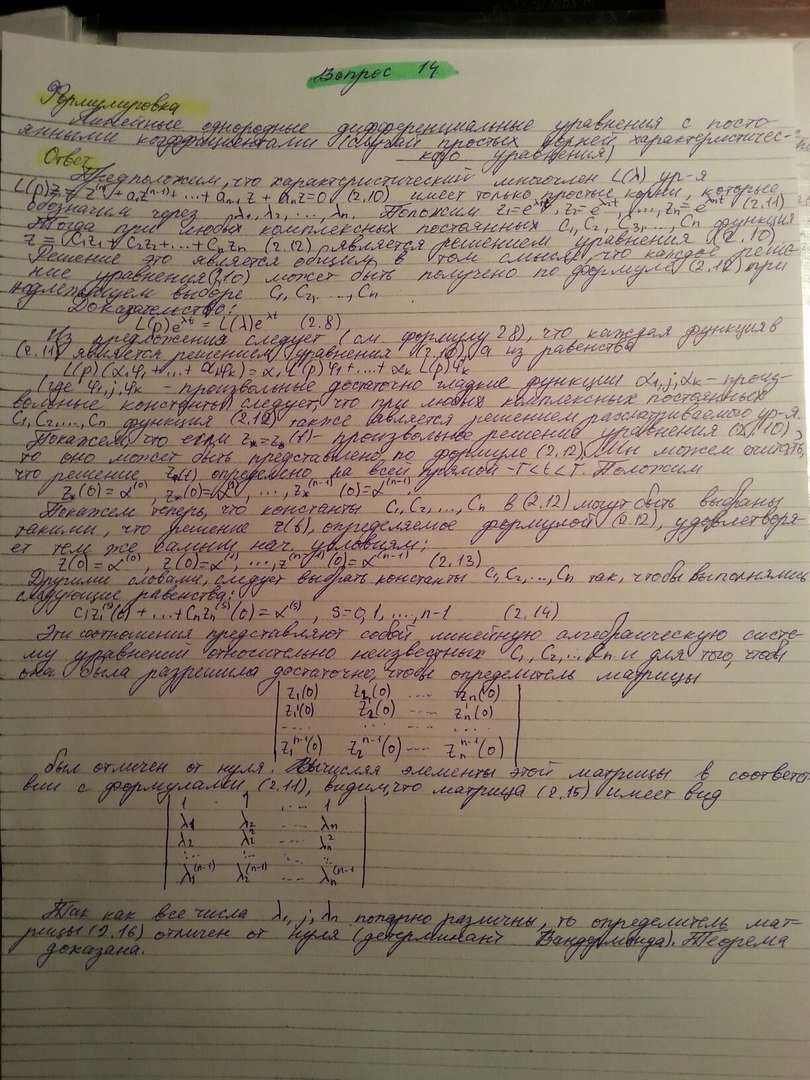 Вопрос 14.
Формулировка
Линейные однородные дифференциальные уравнения с посто-
янными коэффициентами (случай простых корней характеристичес-
кого уравнения)
Ответ
Предположим, что характеристический многочлен L(λ) ур-я
L(p)z = zⁿ + a₁z⁽ⁿ⁻¹⁾ + ... + aₙ₋₁ z + aₙz = 0 (2.10) имеет только простые корни, которые
обозначим через λ₁, λ₂, ..., λₙ. Положим z₁ = e^λt, z₂ = e^λt, ..., zₙ = e^λt (2.11)
Тогда при любых комплексных постоянных C₁, C₂, C₃, ..., Cₙ функция
z = C₁z₁ + C₂z₂ + ... + Cₙzₙ (2.12) является решением уравнения (2.10)
Решение это является общим в том смысле, что каждое реше-
ние уравнения (2.10) может быть получено по формуле (2.12) при
надлежащем выборе C₁, C₂, ..., Cₙ
Доказательство:
L(p)e^λt = L(λ)e^λt (2.8)
Из предложения следует (см. формулу 2.8), что каждая функция в
(2.11) является решением уравнения (2.10), а из равенства
L(p)(α₁φ₁ + ... + αₖφₖ) = α₁L(p)φ₁ + ... + αₖ L(p)φₖ
(где φ₁, j, φₖ - произвольные достаточно гладкие функции α₁, j, αₖ - произ-
вольные константы) следует, что при любых комплексных постоянных
C₁, C₂, ..., Cₙ функция (2.12) также является решением рассматриваемого ур-я.
Покажем, что если z* = z*(t) - произвольное решение уравнения (2.10),
то оно может быть представлено по формуле (2.12). Мы можем считать,
что решение z*(t) определено на всей прямой -T < t < T. Положим
z*(0) = α⁽⁰⁾, z*(0) = α⁽¹⁾, ..., z*⁽ⁿ⁻¹⁾(0) = α⁽ⁿ⁻¹⁾
Покажем теперь, что константы C₁, C₂, ..., Cₙ в (2.12) могут быть выбраны
такими, что решение z(t), определяемое формулой (2.12), удовлетворя-
ет тем же самым нач. условиям:
z(0) = α⁽⁰⁾, z(0) = α⁽¹⁾, ..., z⁽ⁿ⁻¹⁾(0) = α⁽ⁿ⁻¹⁾ (2.13)
Другими словами, следует выбрать константы C₁, C₂, ..., Cₙ так, чтобы выполнялись
следующие равенства:
C₁z₁⁽ˢ⁾(0) + ... + Cₙzₙ⁽ˢ⁾(0) = α⁽ˢ⁾, s = 0, 1, ..., n-1 (2.14)
Эти соотношения представляют собой линейную алгебраическую систе-
му уравнений относительно неизвестных C₁, C₂, ... Cₙ и для того, чтобы
она была разрешима достаточно, чтобы определитель матрицы
z₁(0) z₂(0) .... zₙ(0)
z₁'(0) z₂'(0) .... zₙ'(0)
.... ... .... ...
z₁ⁿ⁻¹(0) z₂ⁿ⁻¹(0) .... zₙⁿ⁻¹(0)
был отличен от нуля. Вычисляя элементы этой матрицы в соответс-
вии с формулами (2.11), видим, что матрица (2.15) имеет вид
1 1 .... 1
λ₁ λ₂ .... λₙ
λ₂ λ₂² .... λₙ²
... ... .... ...
λ₁⁽ⁿ⁻¹⁾ λ₂⁽ⁿ⁻¹⁾ .... λₙ⁽ⁿ⁻¹⁾
Так как все числа λ₁, j, λₙ попарно различны, то определитель мат-
рицы (2.16) отличен от нуля (детерминант Вандермонда). Теорема
доказана.